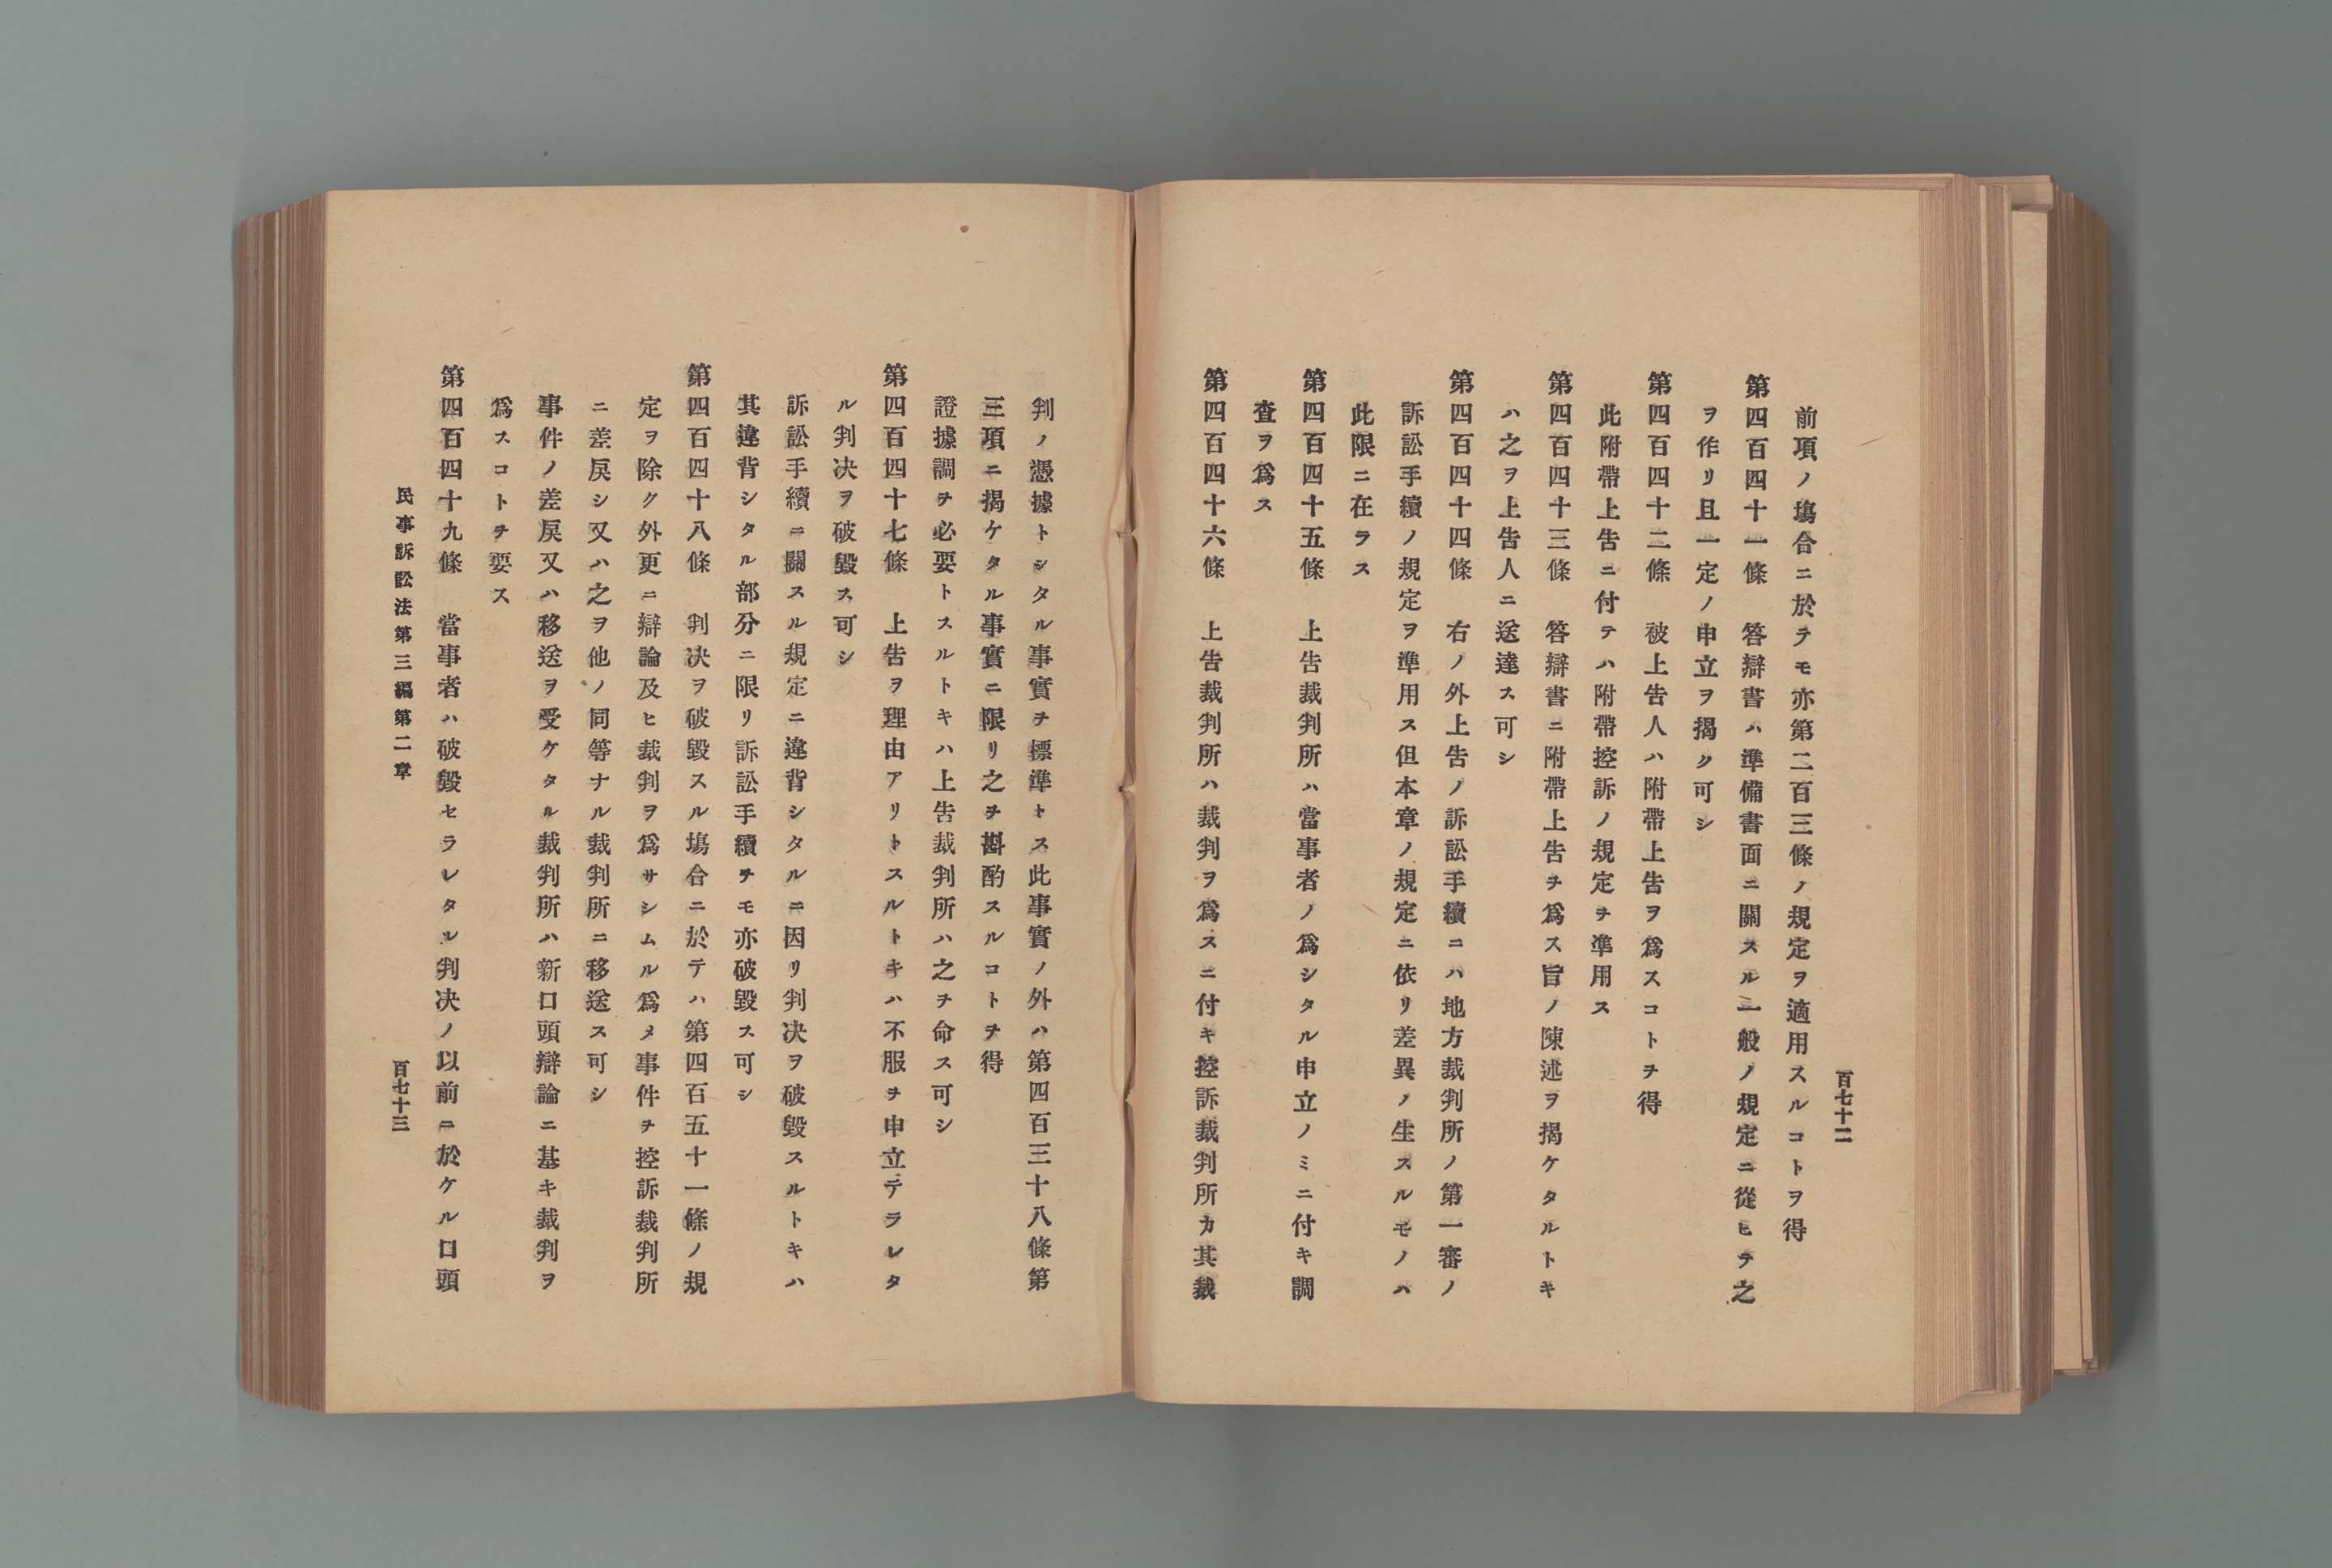 百七十二
前項ノ塲合ニ於テモ亦第二百三條ノ規定ヲ適用スルコトヲ得
第四百四十一條　答辯書ハ準備書面ニ關スル一般ノ規定ニ從ヒテ之
ヲ作リ且一定ノ申立ヲ揭ク可シ
第四百四十二條　被上告人ハ附帶上告ヲ爲スコトヲ得
此附帶上告ニ付テハ附帶控訴ノ規定ヲ準用ス
第四百四十三條　答辯書ニ附帶上告ヲ爲ス旨ノ陳述ヲ揭ケタルトキ
ハ之ヲ上告人ニ送達ス可シ
第四百四十四條　右ノ外上告ノ訴訟手續ニハ地方裁判所ノ第一審ノ
訴訟手續ノ規定ヲ準用ス但本章ノ規定ニ依リ差異ノ生スルモノハ
此限ニ在ラス
第四百四十五條　上告裁判所ハ當事者ノ爲シタル申立ノミニ付キ調
査ヲ爲ス
第四百四十六條　上告裁判所ハ裁判ヲ爲スニ付キ控訴裁判所カ其裁
判ノ憑據トシタル事實ヲ標準トス此事實ノ外ハ第四百三十八條第
三項ニ揭ケタル事實ニ限リ之ヲ斟酌スルコトヲ得
證據調ヲ必要トスルトキハ上告裁判所ハ之ヲ命ス可シ
第四百四十七條　上告ヲ理由アリトスルトキハ不服ヲ申立テラレタ
ル判决ヲ破毀ス可シ
訴訟手續ニ關スル規定ニ違背シタルニ因リ判决ヲ破毀スルトキハ
其違背シタル部分ニ限リ訴訟手續ヲモ亦破毀ス可シ
第四百四十八條　判决ヲ破毀スル塲合ニ於テハ第四百五十一條ノ規
定ヲ除ク外更ニ辯論及ヒ裁判ヲ爲サシムル爲メ事件ヲ控訴裁判所
ニ差戾シ又ハ之ヲ他ノ同等ナル裁判所ニ移送ス可シ
事件ノ差戾又ハ移送ヲ受ケタル裁判所ハ新口頭辯論ニ基キ裁判ヲ
爲スコトヲ要ス
第四百四十九條　當事者ハ破毀セラレタル判决ノ以前ニ於ケル口頭
民事訴訟法第三編第二章
百七十三